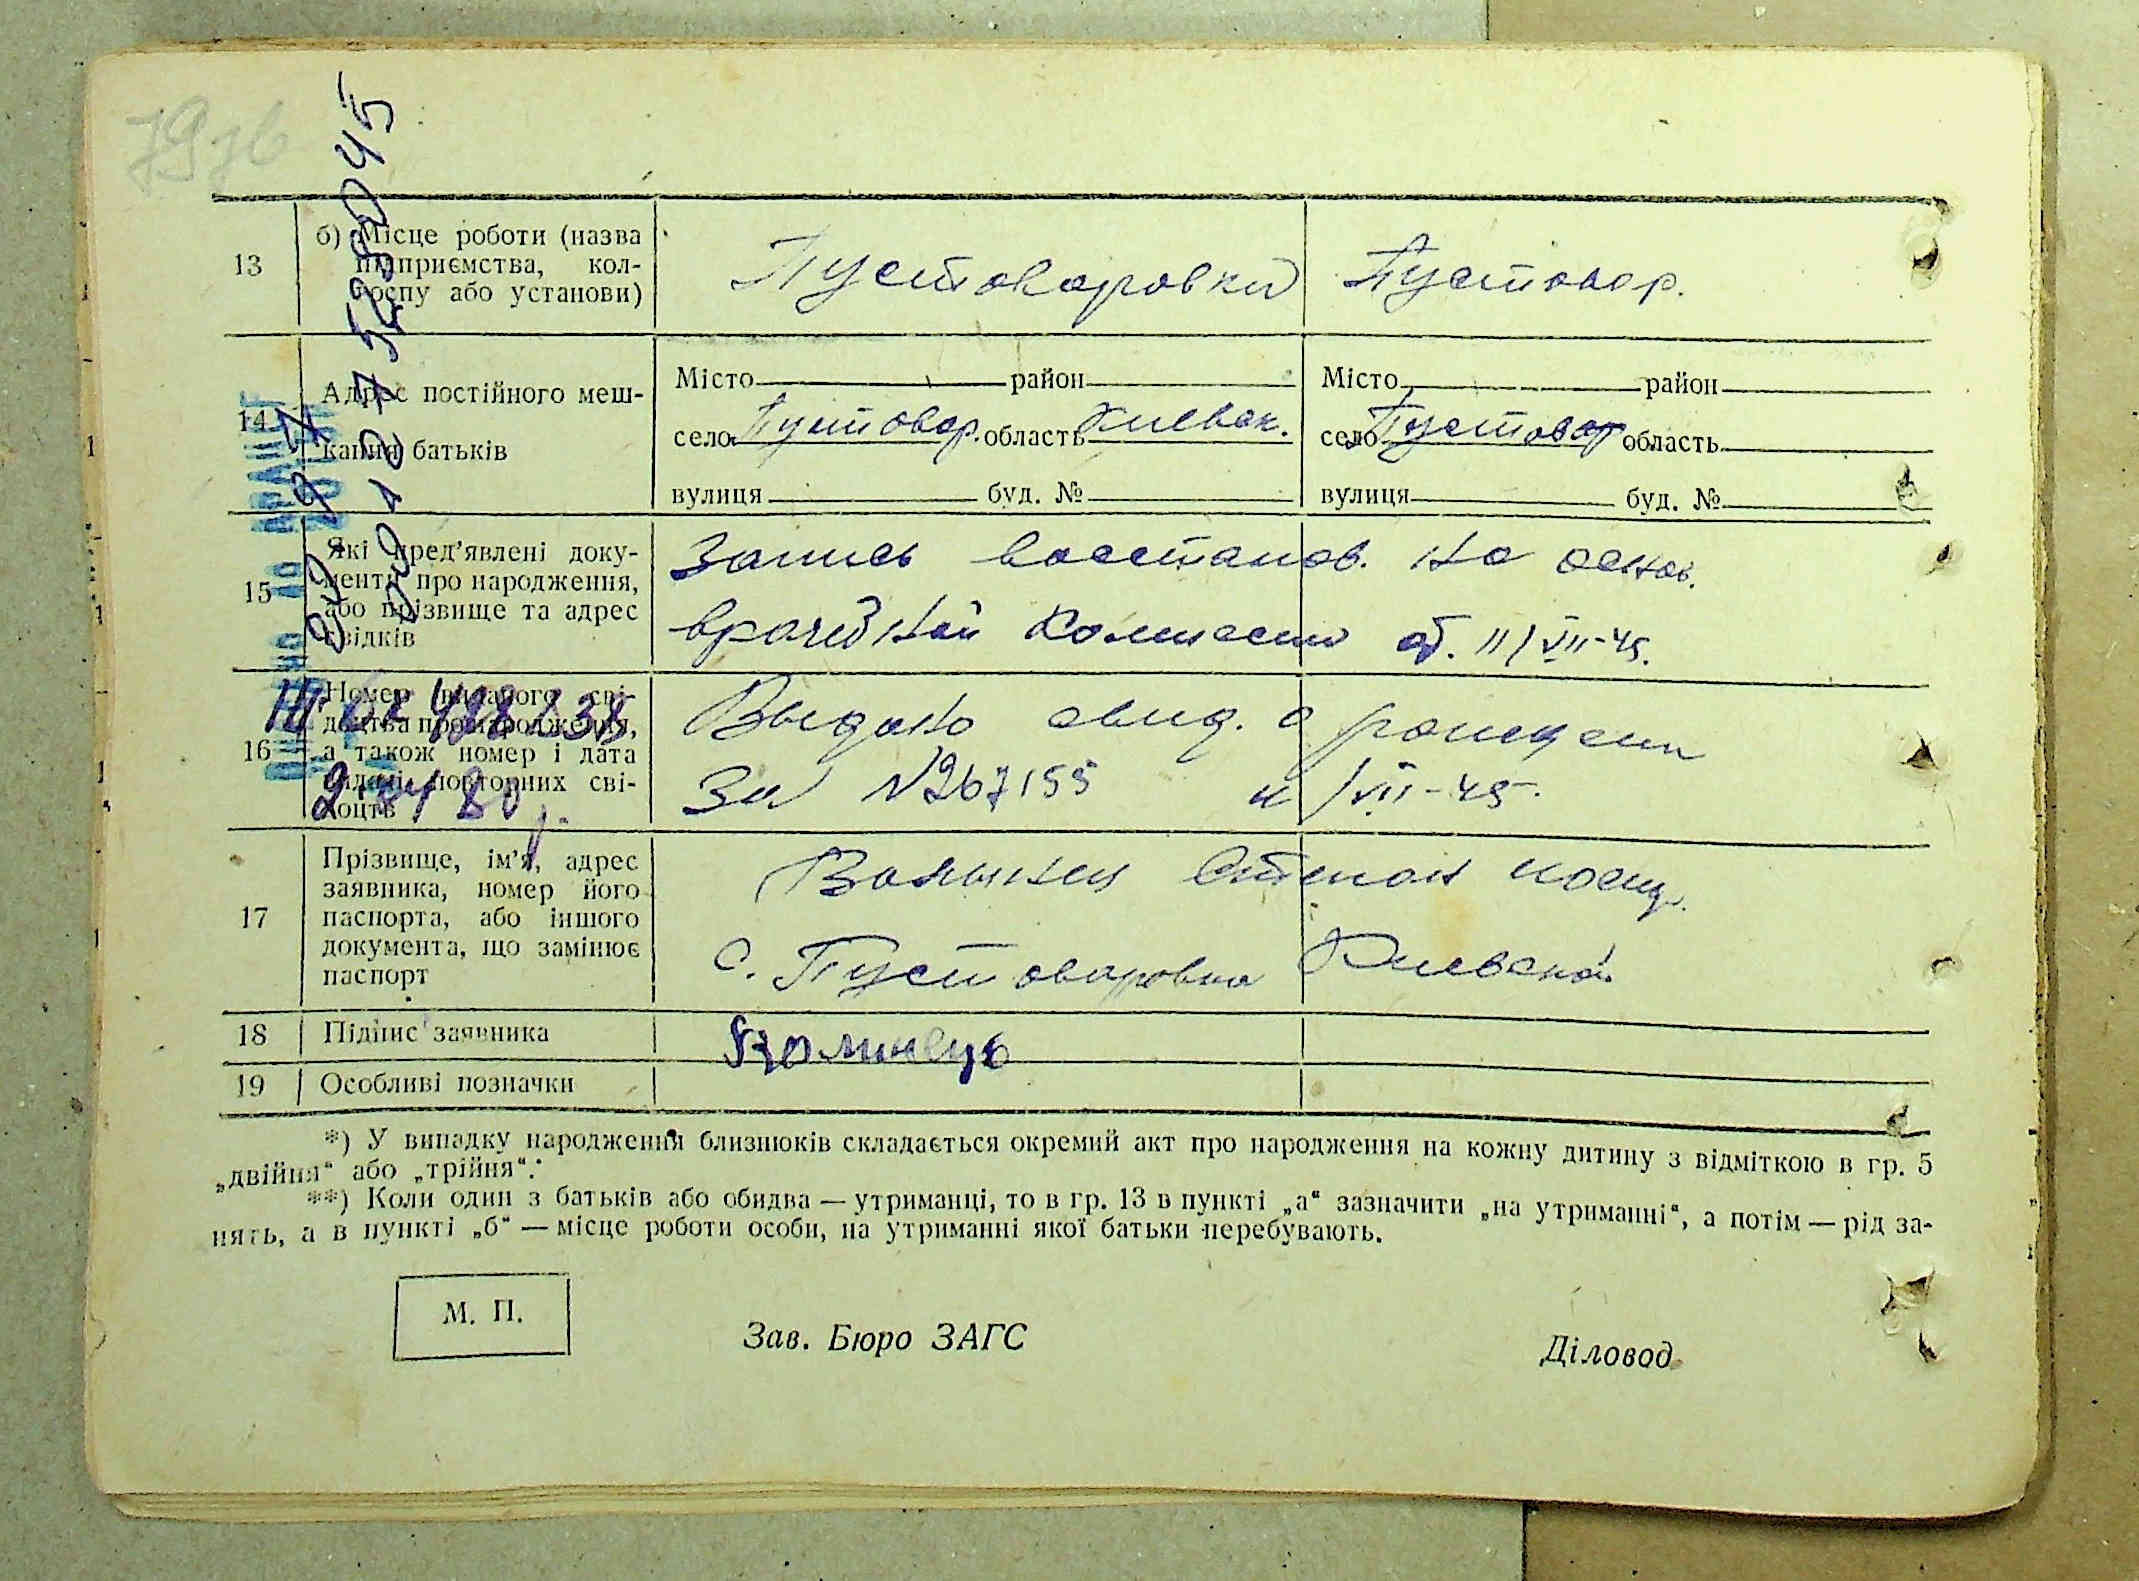 79зв
13
б) Місце роботи (назва
підприємства, кол-
госпу або установи)
Пустоваровка
Пустовар.
14
Адрес постійного меш-
кання батьків
Місто район
село Пустовар. область Киевск.
вулиця буд. №
Місто район
село Пустовар область
вулиця буд. №
15
Які пред’явлені доку-
менти про народження,
або прізвище та адрес
свідків
Запись восстанов. на основ.
врачебной комисии от. 11/VII-45.
16
Номер виданого сві-
доцтва про народження,
а також номер і дата
видачі повторних сві-
доцтв
Выдано свид. о рожден
за №267155 11/VII-45.
17
Прізвище, ім’я, адрес
заявника, номер його
паспорта, або іншого
документа, що замінює
паспорт
Волынец Степан
с. Пустоваровка Киевской
18
Підпис заявника
Волинець
19
Особливі позначки
*) У випадку народження близнюків складається окремий акт про народження на кожну дитину з відміткою в гр. 5
„двійня“ або „трійня“.
**) Коли один з батьків або обидва — утриманці, то в гр. 13 в пункті „а“ зазначити „на утриманні“, а потім — рід за-
нять, а в пункті „б“ — місце роботи особи, на утриманні якої батьки перебувають.
М. П.
Зав. Бюро ЗАГС
Діловод